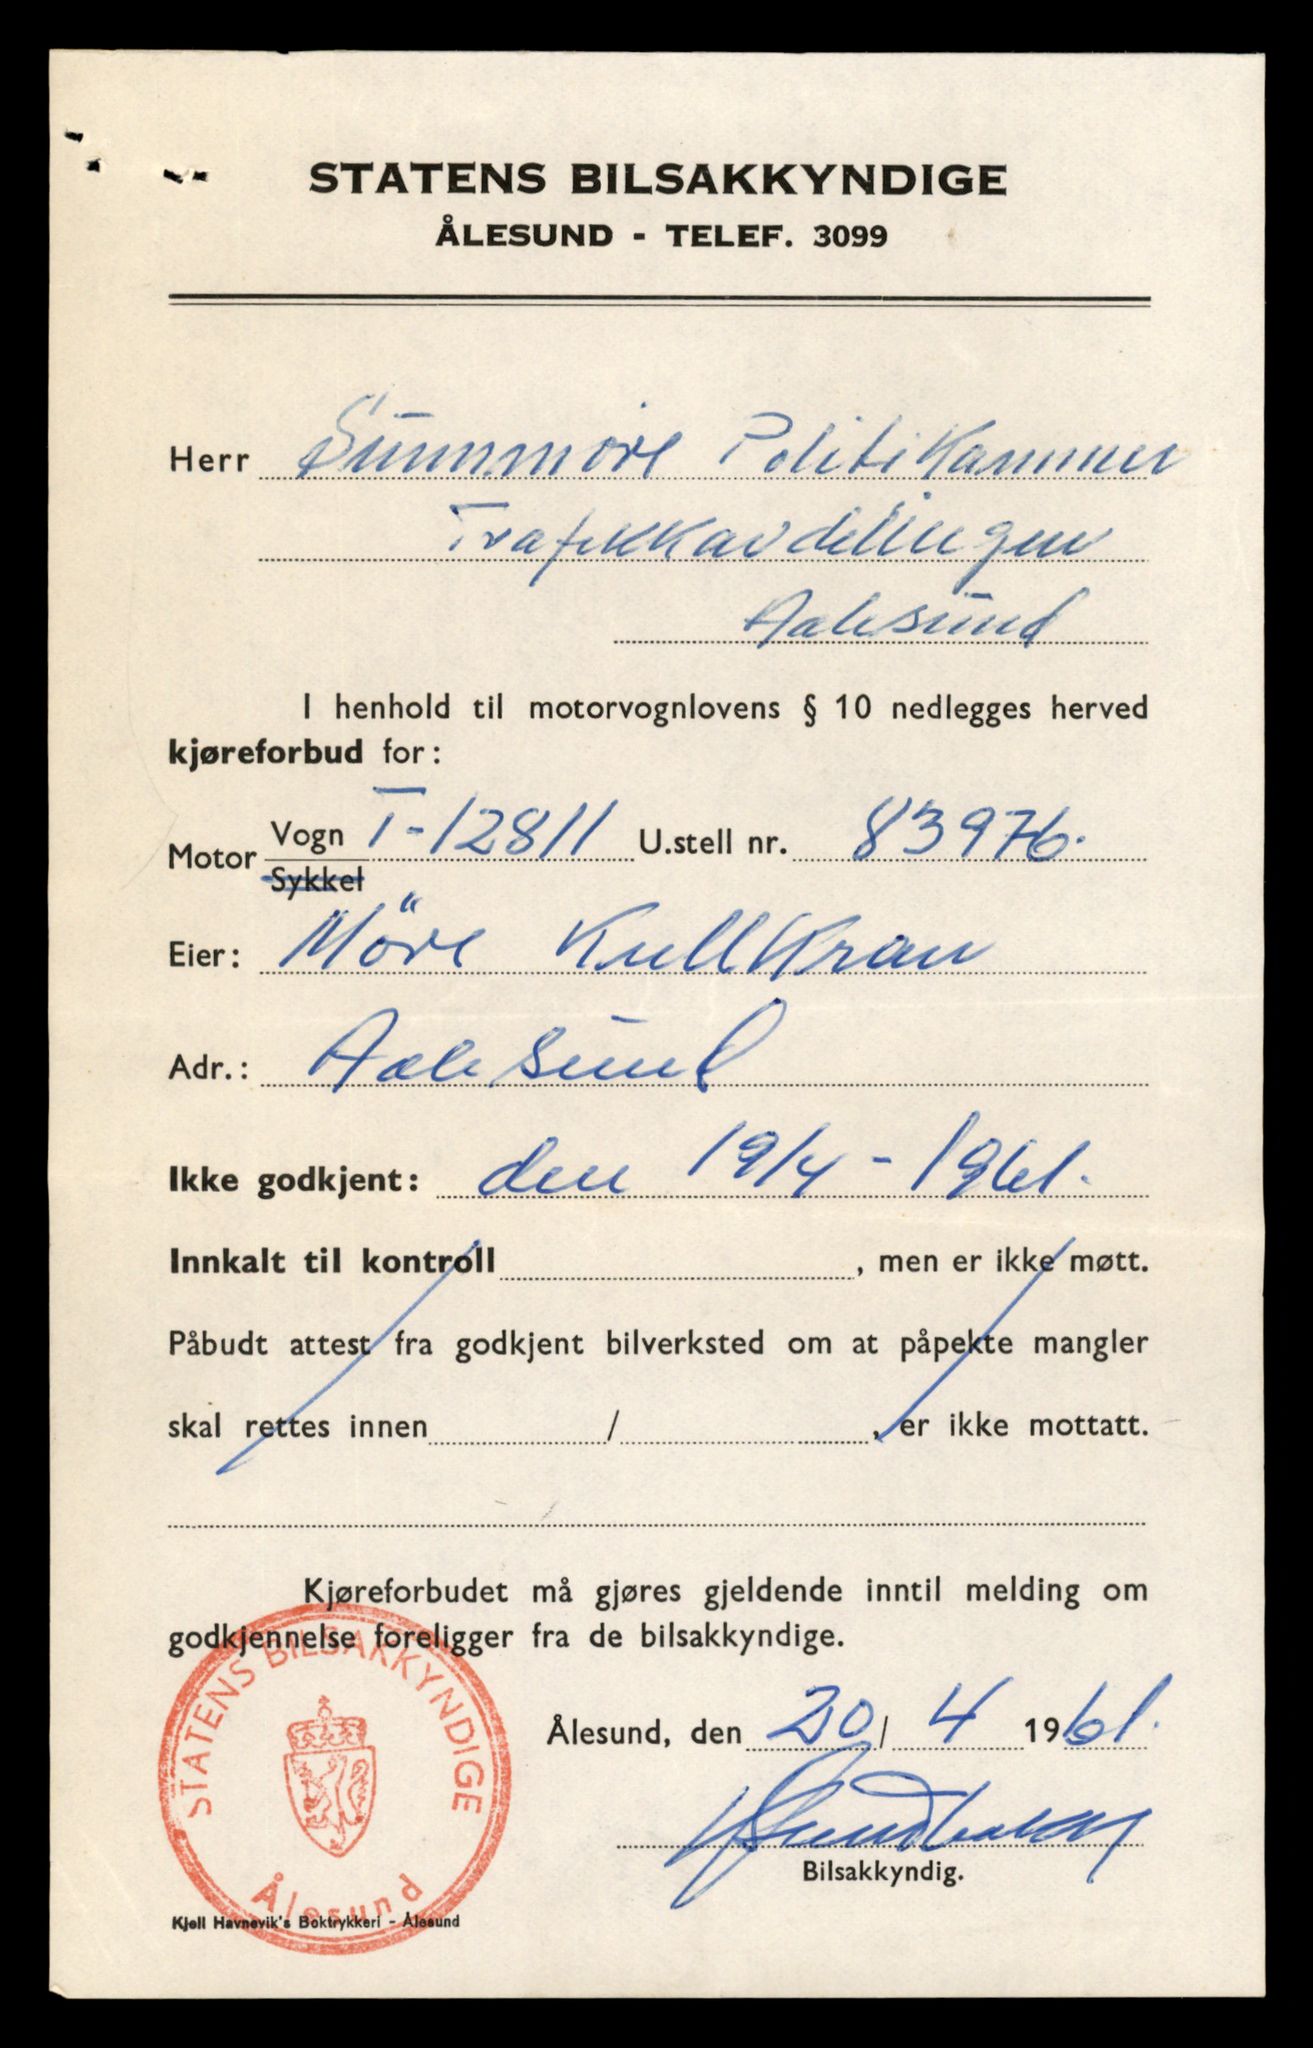 STATENS BILSAKKYNDIGE
ÅLESUND - TELEF. 3099
Herr Sunnmöre Politikammer
Trafikkavdelingen
Aalesund
I henhold til motorvognlovens § 10 nedlegges herved
kjøreforbud for:
Motor Vogn T-12811 U.stell nr. 83976.
Sykkel
Eier: Möre Kullkran
Adr.: Aalesund
Ikke godkjent: den 19/4 - 1961.
Innkalt til kontroll , men er ikke møtt.
Påbudt attest fra godkjent bilverksted om at påpekte mangler
skal rettes innen / , er ikke mottatt.
Kjøreforbudet må gjøres gjeldende inntil melding om
godkjennelse foreligger fra de bilsakkyndige.
STATENS BILSAKKYNDIGE
Ålesund
Ålesund, den 20 / 4 1961.
Bilsakkyndig.
Kjell Havnevik's Boktrykkeri - Ålesund